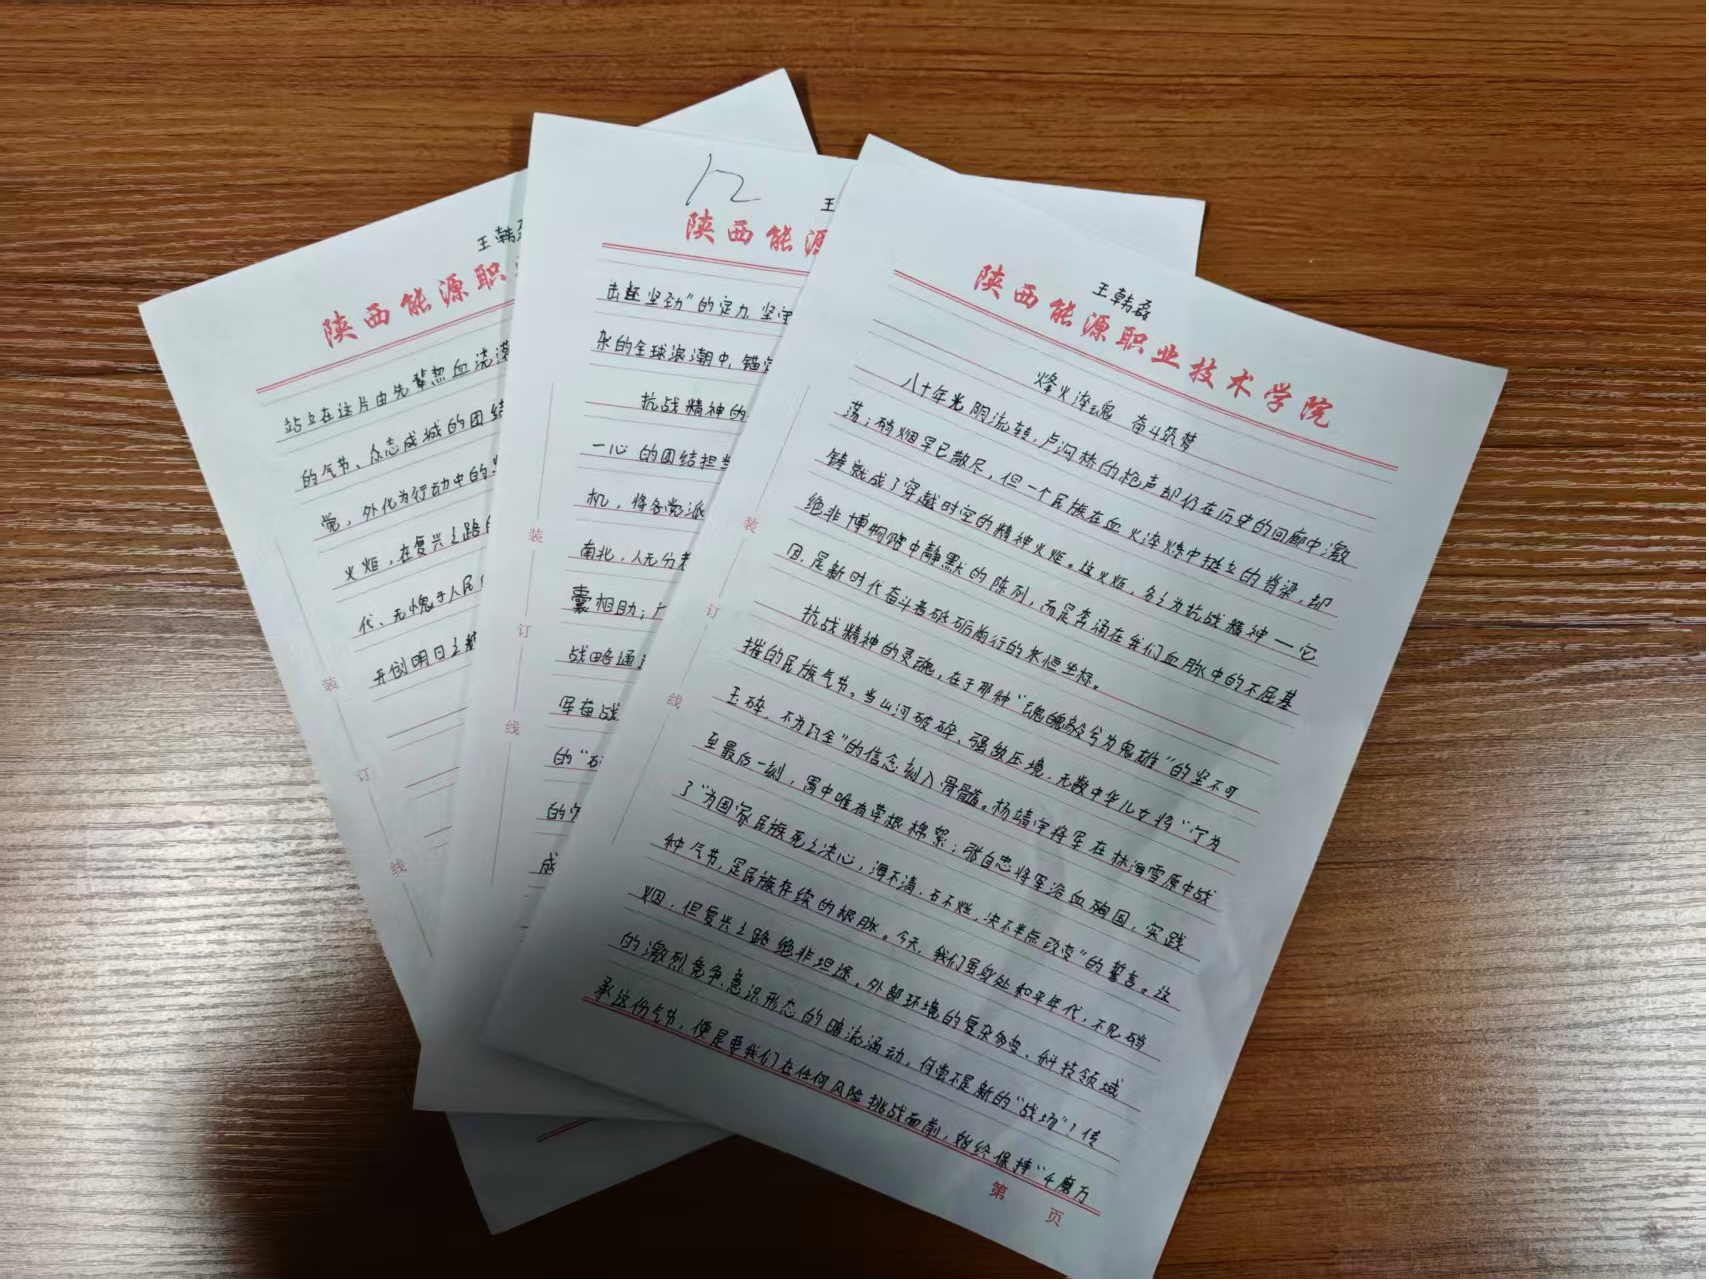 王韩磊
陕西能源职业技术学院
烽火淬魂 奋斗筑梦
八十年光阴流转，卢沟桥的枪声却仍在历史的回廊中激
荡；硝烟早已散尽，但一个民族在血火淬炼中挺立的脊梁，却
铸就成了穿越时空的精神火炬。这火炬，名之为抗战精神——它
绝非博物馆中静默的陈列，而是奔涌在我们血脉中的不屈基
因，是新时代奋斗者砥砺前行的永恒坐标。
抗战精神的灵魂，在于那种“魂魄毅兮为鬼雄”的坚不可
摧的民族气节。当山河破碎、强敌压境，无数中华儿女将“宁为
玉碎，不为瓦全”的信念刻入骨髓。杨靖宇将军在林海雪原中战
至最后一刻，胃中唯有草根棉絮；张自忠将军浴血殉国，实践
了“为国家民族死之决心，海不清，石不烂，决不半点改变”的誓言。这
种气节，是民族存续的根脉。今天，我们虽身处和平年代，不见硝
烟，但复兴之路绝非坦途，外部环境的复杂多变、科技领域
的激烈竞争、意识形态的暗流涌动，何尝不是新的“战场”？传
承这份气节，便是要我们在任何风险挑战面前，始终保持“千磨万
第 页
装
订
线
12
王
陕西能源
击还坚劲”的定力，坚守
杂的全球浪潮中，锚定
抗战精神的
一心的团结担当
机，将各党派
南北，人无分老
囊相助；
战略通
军奋战
的
的
成
装
订
线
王韩磊
陕西能源职
站立在这片由先辈热血浇灌
的气节、众志成城的团结
觉，外化为行动中的
火炬，在复兴之路
代、无愧于人民
开创明日之
装
订
线